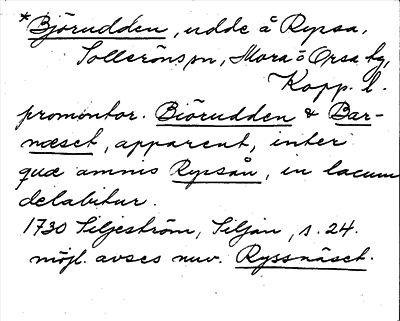 *Björudden, udde å Rypsa,
Solleröns sn, Mora o Orsa tg,
Kopp. l.
promontor. Biörudden & Bar-
næset, apparent, inter
quæ amnis Rypsån, in lacum
delabitur.
1730 Siljeström, Siljan, s. 24.
möjl. avses nuv. Ryssnäset.